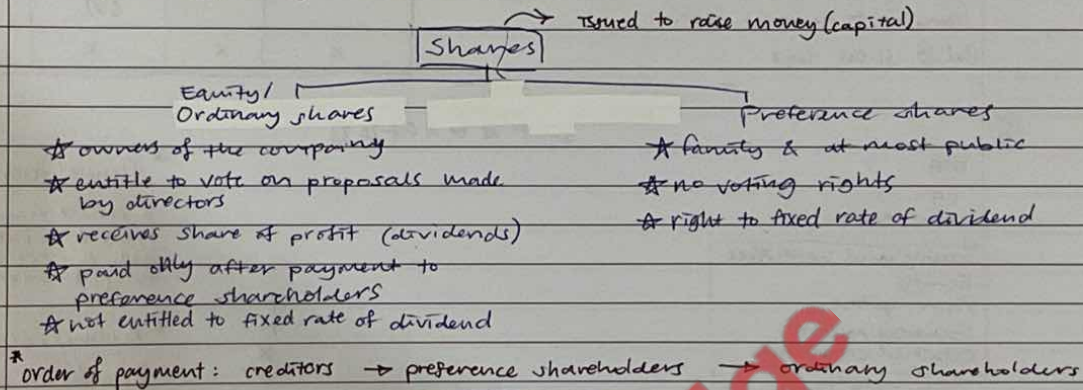 Issued to raise money (capital)
Shares
Equity/
Ordinary shares
* owners of the company
* entitle to vote on proposals made
by directors
* receives share of profit (dividends)
* paid only after payment to
preference shareholders
* not entitled to fixed rate of dividend
Preference shares
* family & at most public
* no voting rights
* right to fixed rate of dividend
* order of payment: creditors → preference shareholders → ordinary shareholders